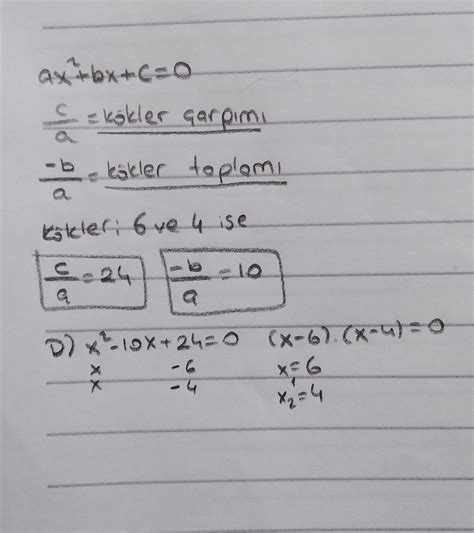 ax²+bx+c=0
c/a = kökler çarpımı
-b/a = kökler toplamı
kökleri 6 ve 4 ise
c/a = 24 -b/a = 10
D) x²-10x+24=0 (x-6).(x-4)=0
x -6 x₁=6
x -4 x₂=4